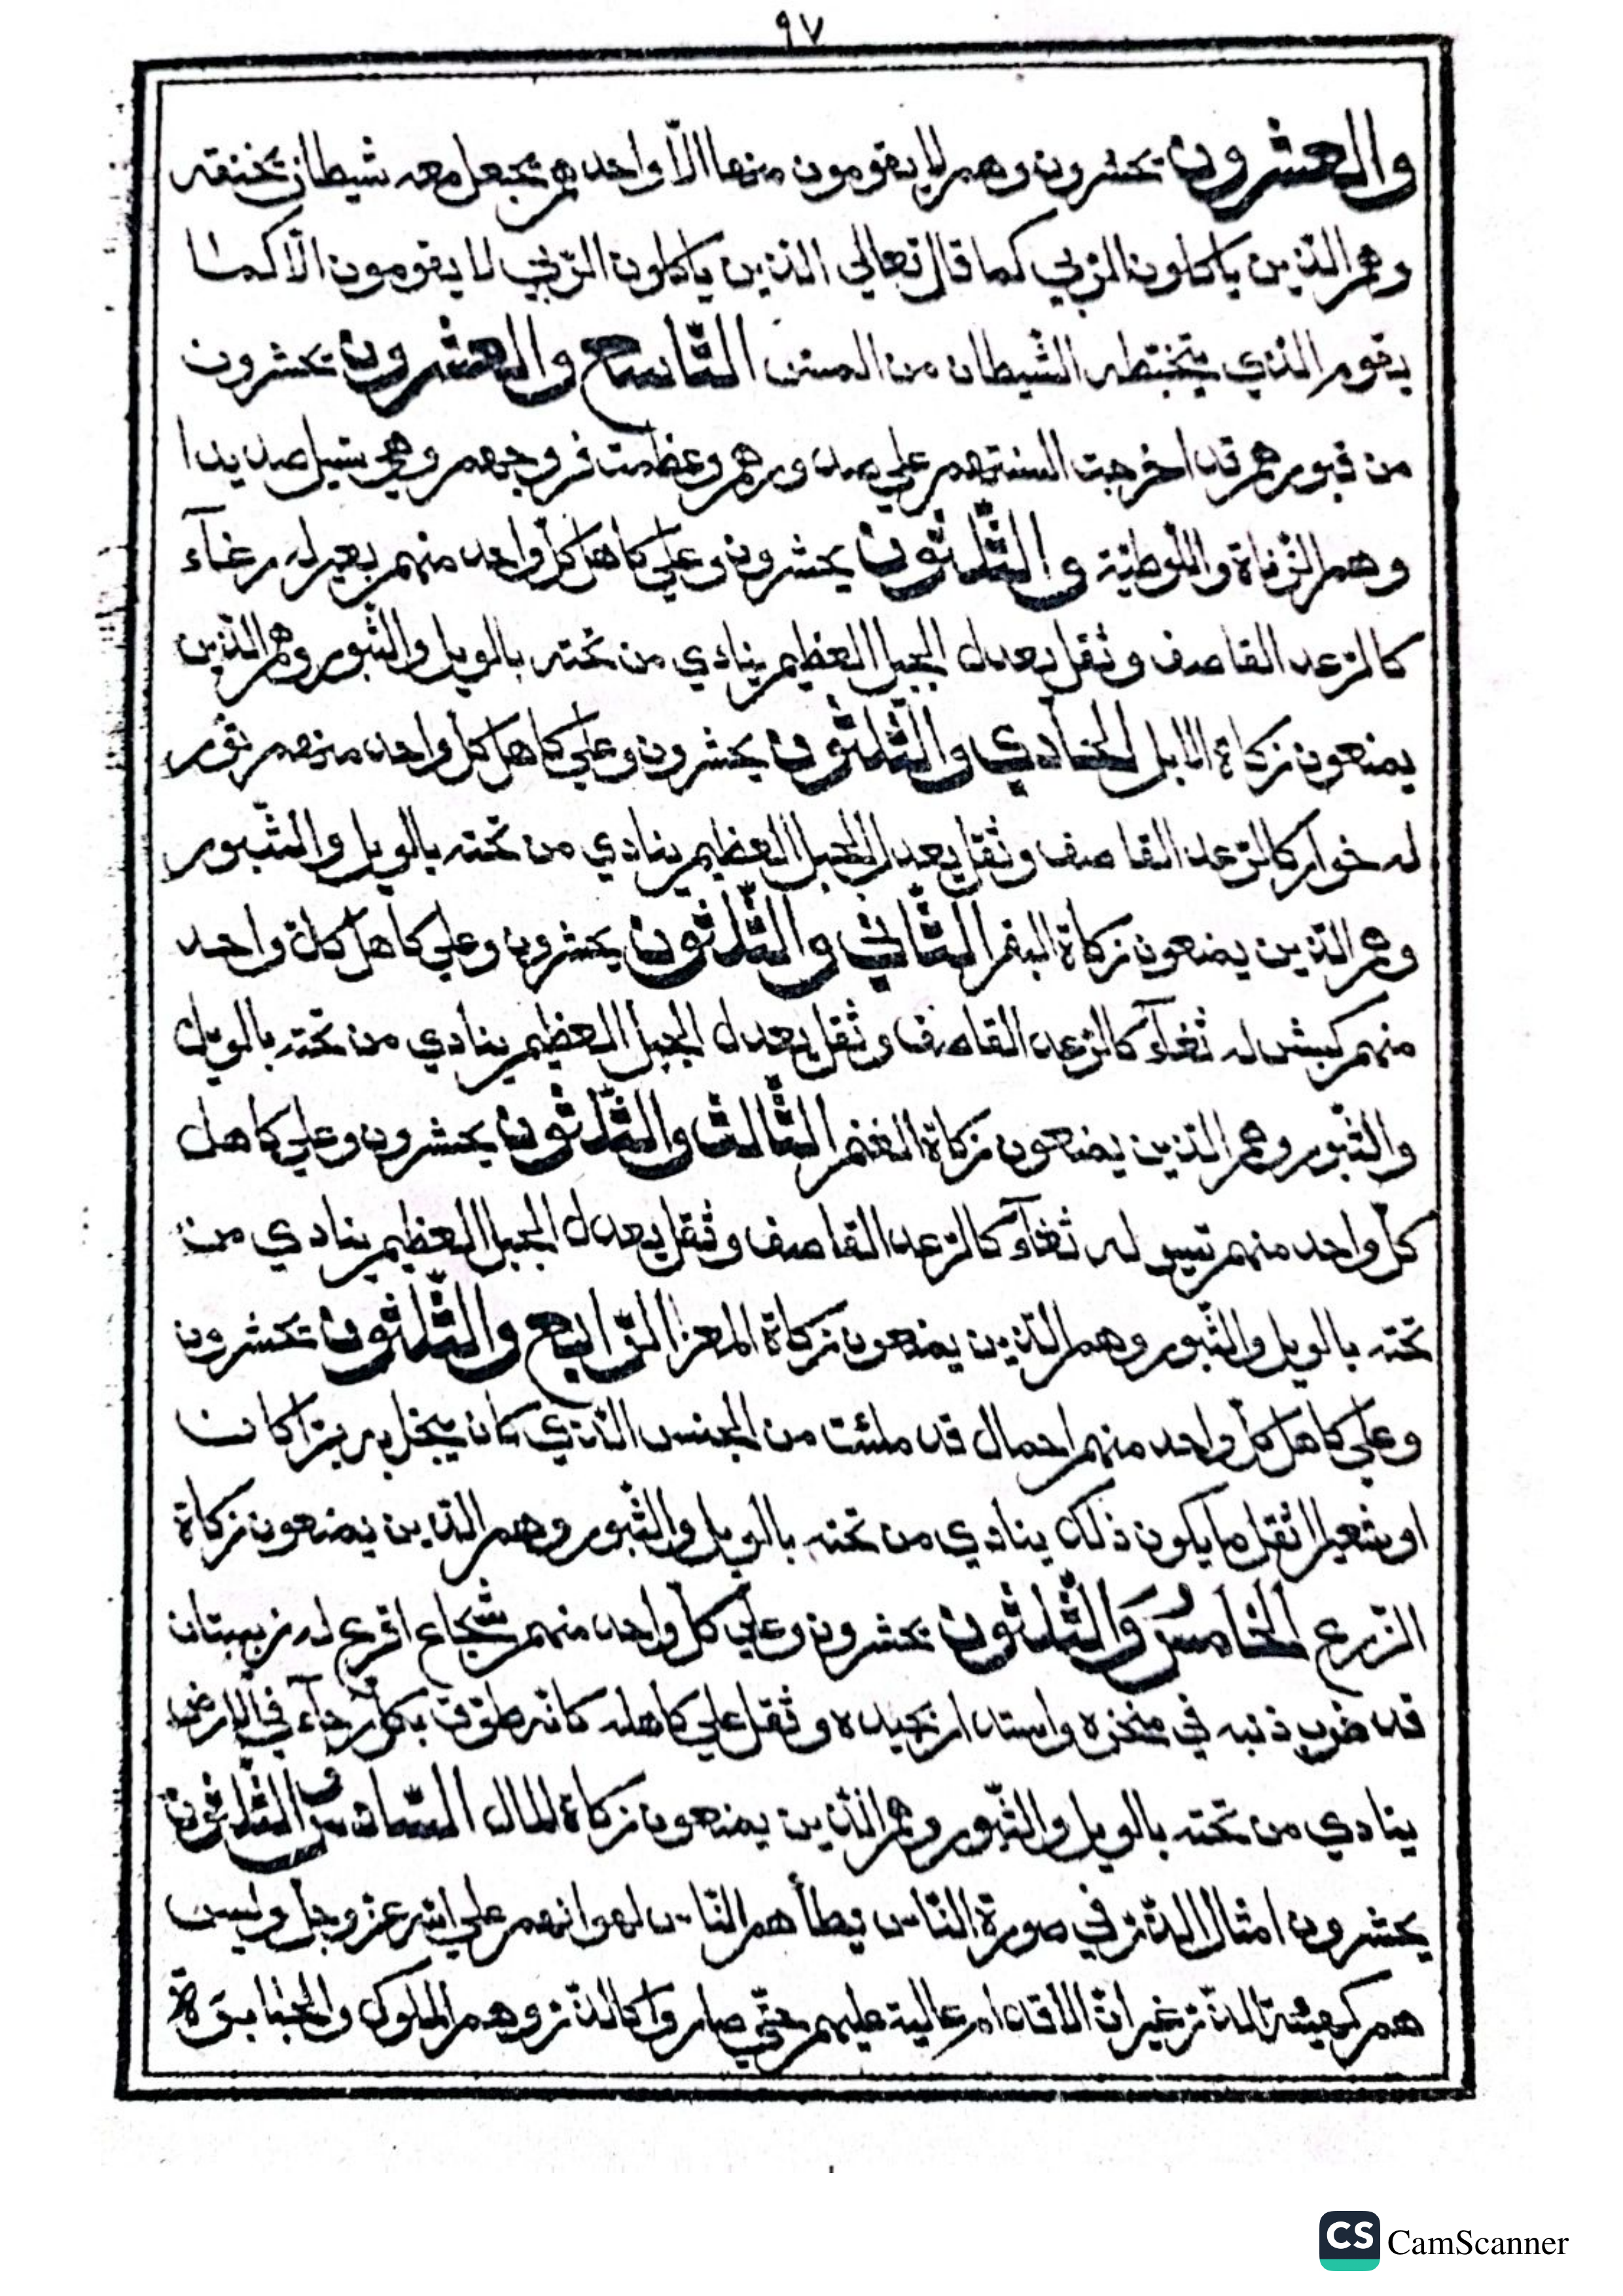 ٩٧
والعشرون يحشرون وهم لا يقومون منها الّا واحدهم يجعل معه شيطان يخنقه
وهم الذين ياكلون الربي كما قال تعالي الذين ياكلون الربي لا يقومون الّا كما
يقوم الذي يتخبطه الشيطان من المس التّاسع والعشرون يحشرون
من قبورهم قد اخرجت السنتهم علي صدورهم وعظمت فروجهم وهي تسيل صديدا
وهم الزّناة واللّوطيّة والثّلثون يحشرون وعلي كاهل كلّ واحد منهم بعير له رغآء
كالرّعد القاصف وثقل يعدل الجبل العظيم ينادي من تحته بالويل والثّبور وهم الّذين
يمنعون زكاة الابل الحادي والثّلثون يحشرون وعلي كاهل كل واحد منهم ثور
له خوار كالرّعد القاصف وثقل يعدل الجبل العظيم ينادي من تحته بالويل والثّبور
وهم الّذين يمنعون زكاة البقر الثّاني والثّلثون يحشرون وعلي كاهل كل واحد
منهم كبش له ثغآء كالرّعد القاصف وثقل يعدل الجبل العظيم ينادي من تحته بالويل
والثّبور وهم الّذين يمنعون زكاة الغنم الثّالث والثّلثون يحشرون وعلي كاهل
كلّ واحد منهم تيس له ثغآء كالرّعد القاصف وثقل يعدل الجبل العظيم ينادي من
تحته بالويل والثّبور وهم الّذين يمنعون زكاة المعز الرّابع والثّلثون يحشرون
وعلي كاهل كلّ واحد منهم احمال قد ملئت من الجنس الّذي كان يبخل به برّا كان
او شعيرا اثقل ما يكون ذلك ينادي من تحته بالويل والثّبور وهم الّذين يمنعون زكاة
الزّرع الخامسُ وَالثّلثون يحشرون وعلي كلّ واحد منهم شجاع اقرع له زبيبتان
قد ضرب ذنبه في منخره واستدار بجيده وثقل علي كاهله كانّه طوّق بكلّ رحآء في الارض
ينادي من تحته بالويل والثّبور وهم الّذين يمنعون زكاة المال السّادس والثّلاثون
يحشرون امثال الذّر في صورة النّاس يطأهم النّاس لهوانهم علي الله عزّ وجلّ وليس
هم كهيئة الذّر غير انّ الاقدام عالية عليهم حتّي صاروا كالذّر وهم الملوك والجبابرة
CS CamScanner